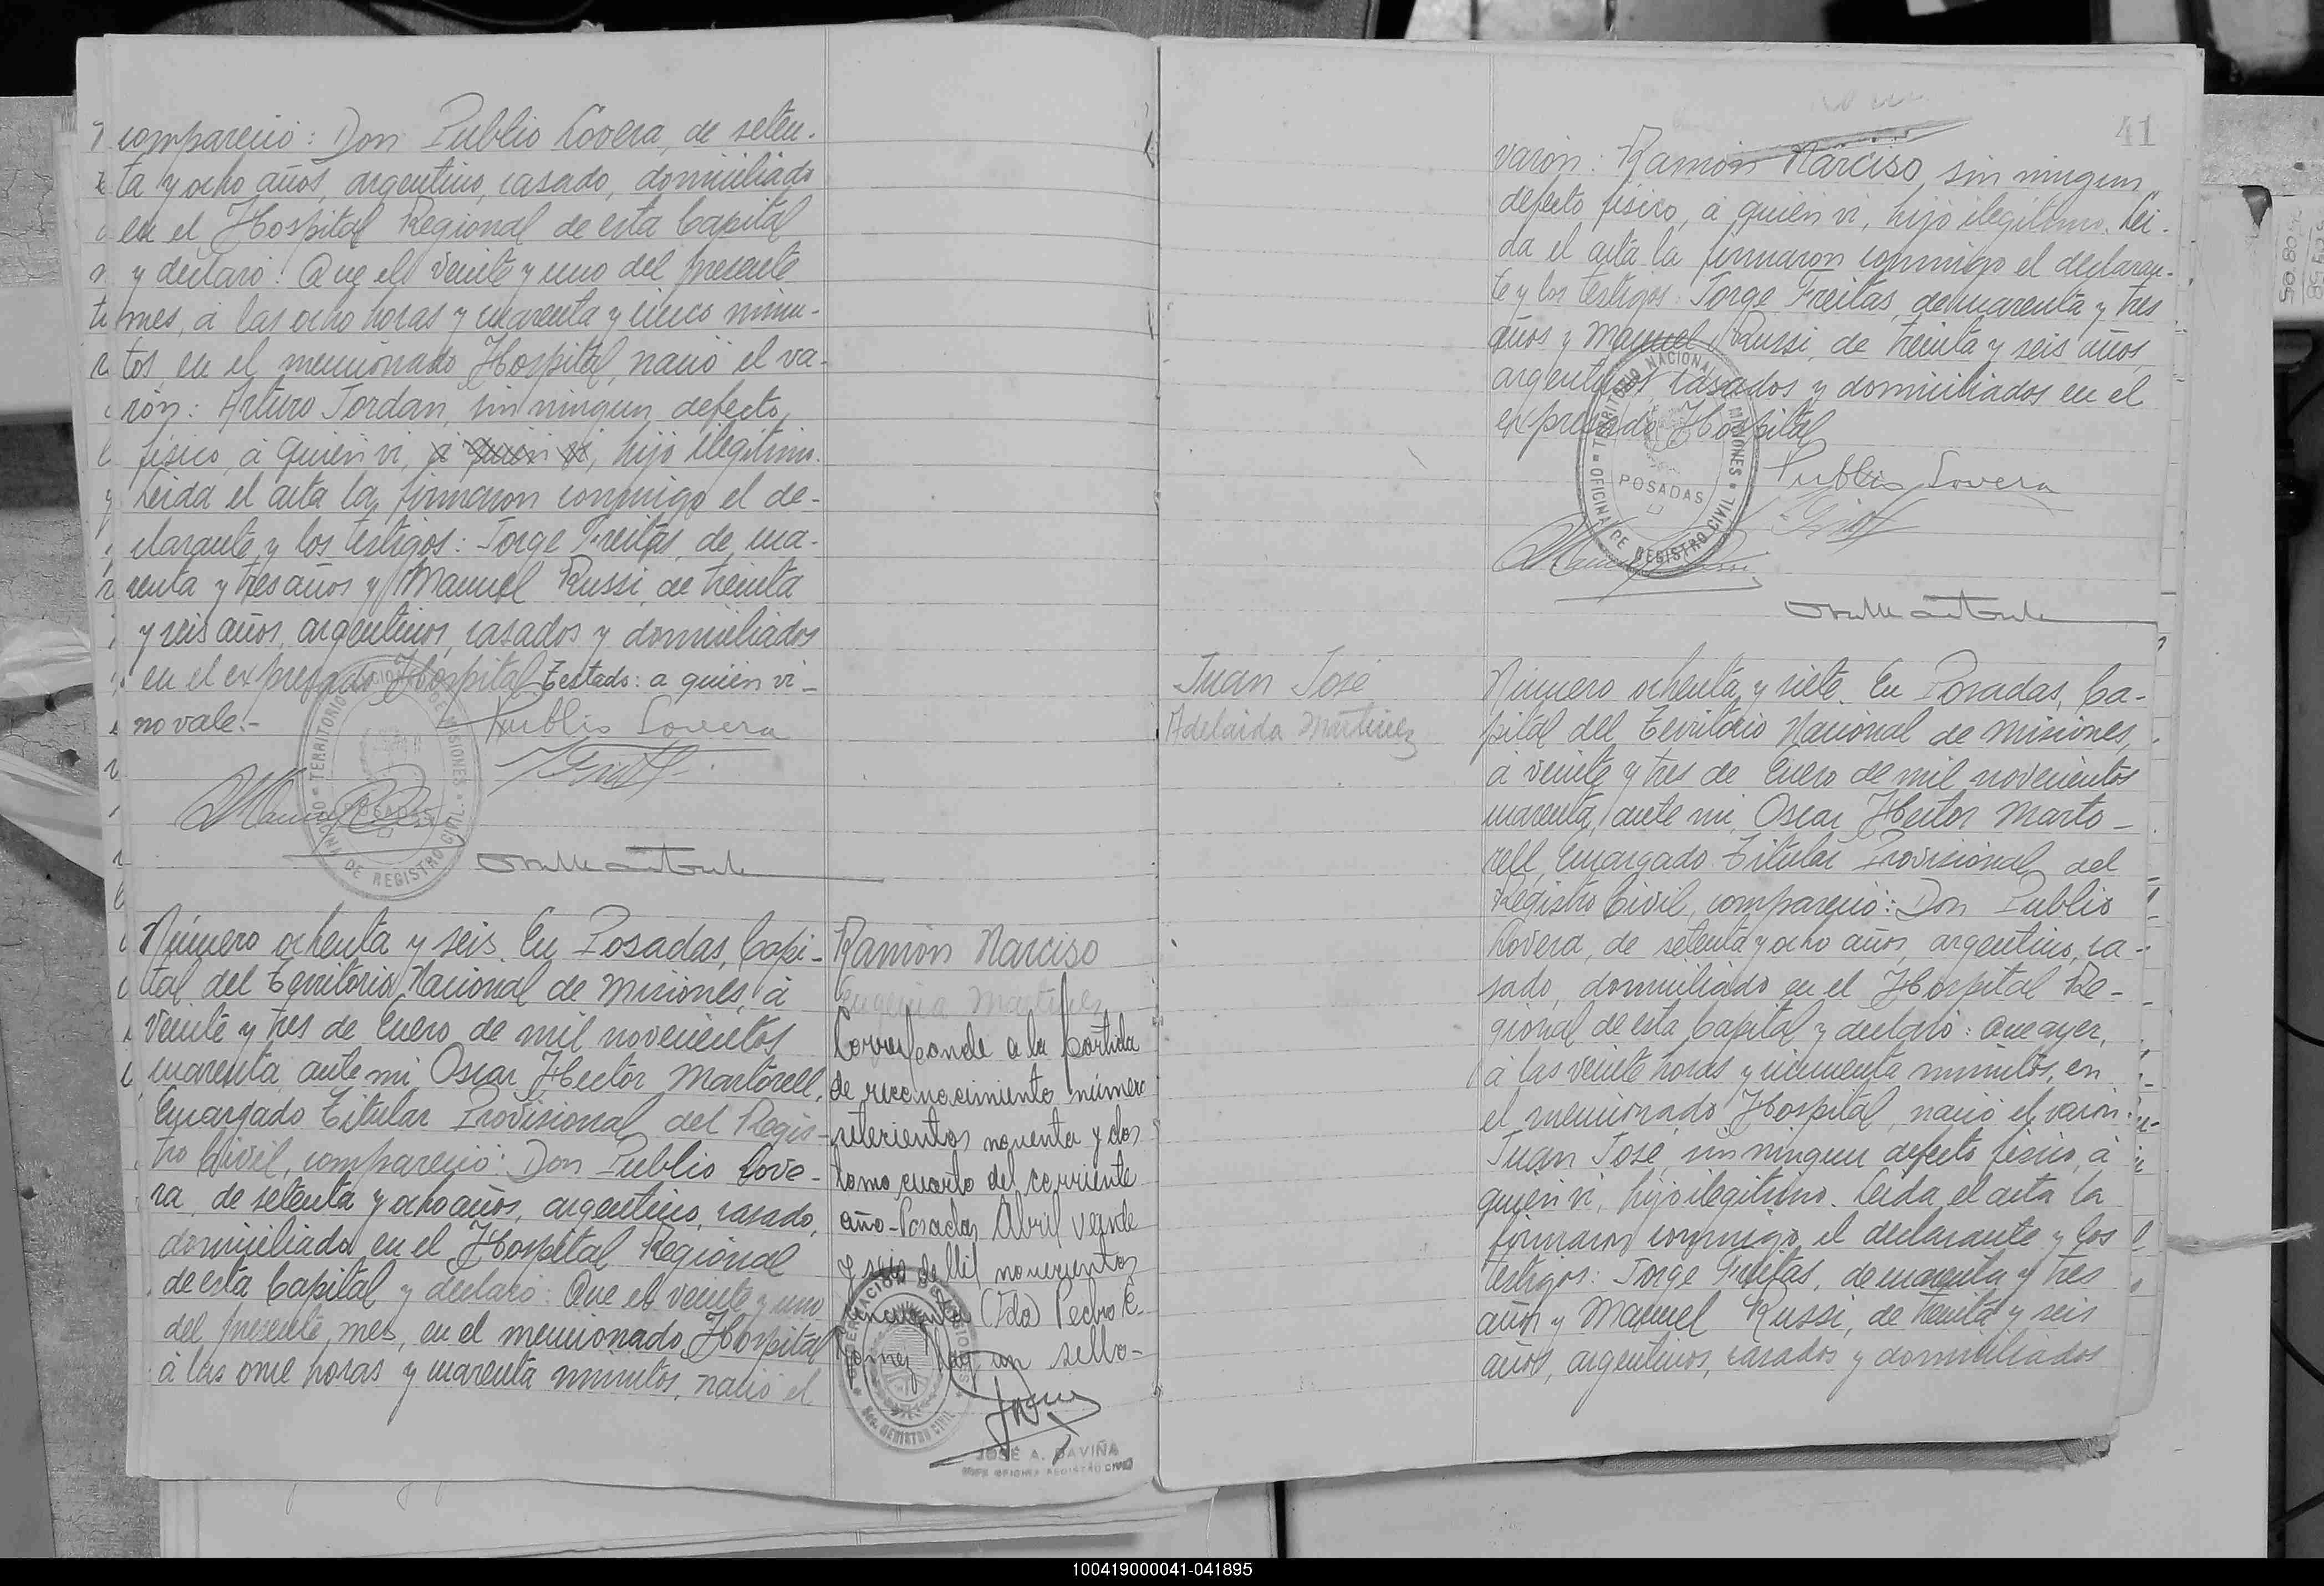 compareció: Don Publio Lovera, de seten-
ta y ocho años, argentino, casado, domiciliado
en el Hospital Regional de esta Capital
y declaró: Que el veinte y uno del presente
mes, á las ocho horas y cuarenta y cinco minu-
tos, en el mencionado Hospital, nació el va-
rón: Arturo Jordan, sin ningun defecto
físico, á quién ví, á quién ví, hijo ilegítimo.
Leida el acta la firmaron conmigo el de-
clarante y los testigos: Jorge Freitas, de cua-
renta y tres años y Manuel Russi, de treinta
y seis años, argentinos, casados y domiciliados
en el expresado Hospital Testado: a quién ví-
no vale.-
Publio Lovera
TERRITORIO NACIONAL DE MISIONES
POSADAS
OFICINA DE REGISTRO CIVIL
Número ochenta y seis. En Posadas, Capi-
tal del Territorio Nacional de Misiones, á
veinte y tres de Enero de mil novecientos
cuarenta, ante mi, Oscar Hector Martorell,
Encargado Titular Provisional del Regis-
tro Civil, compareció: Don Publio Love-
ra, de setenta y ocho años, argentino, casado,
domiciliado en el Hospital Regional
de esta Capital y declaró: Que el veinte y uno
del presente mes, en el mencionado Hospital
á las once horas y cuarenta minutos, nació el
Ramón Narciso
Eugenia Martinez
Corresponde a la partida
de reconocimiento número
setecientos noventa y dos
tomo cuarto del corriente
año-Posadas Abril veinte
y seis de Mil novecientos
cincuenta (Fdo) Pedro E.
Gomez Hay un sello-
GOBERNACION DE MISIONES
REGISTRO CIVIL
JOSÉ A. DAVIÑA
JEFE OFICINA REGISTRO CIVIL
41
varón: Ramón Narciso, sin ningun
defecto físico, á quién ví, hijo ilegítimo. Lei-
da el acta la firmaron conmigo el declaran-
te y los testigos: Jorge Freitas, de cuarenta y tres
años y Manuel Russi, de treinta y seis años,
argentinos, casados y domiciliados en el
expresado Hospital
TERRITORIO NACIONAL DE MISIONES
POSADAS
OFICINA DE REGISTRO CIVIL
Publio Lovera
Juan José
Adelaida Martinez
Número ochenta y siete. En Posadas, Ca-
pital del Territorio Nacional de Misiones,
á veinte y tres de Enero de mil novecientos
cuarenta, ante mi, Oscar Hector Marto-
rell, Encargado Titular Provisional del
Registro Civil, compareció: Don Publio
Lovera, de setenta y ocho años, argentino, ca-
sado, domiciliado en el Hospital Re-
gional de esta Capital y declaró: Que ayer,
á las veinte horas y cincuenta minutos, en
el mencionado Hospital, nació el varón:
Juan José, sin ningun defecto físico, á
quién ví, hijo ilegítimo. Leida el acta la
firmaron conmigo el declarante y los
testigos: Jorge Freitas, de cuarenta y tres
años y Manuel Russi, de treinta y seis
años, argentinos, casados y domiciliados
100419000041-041895